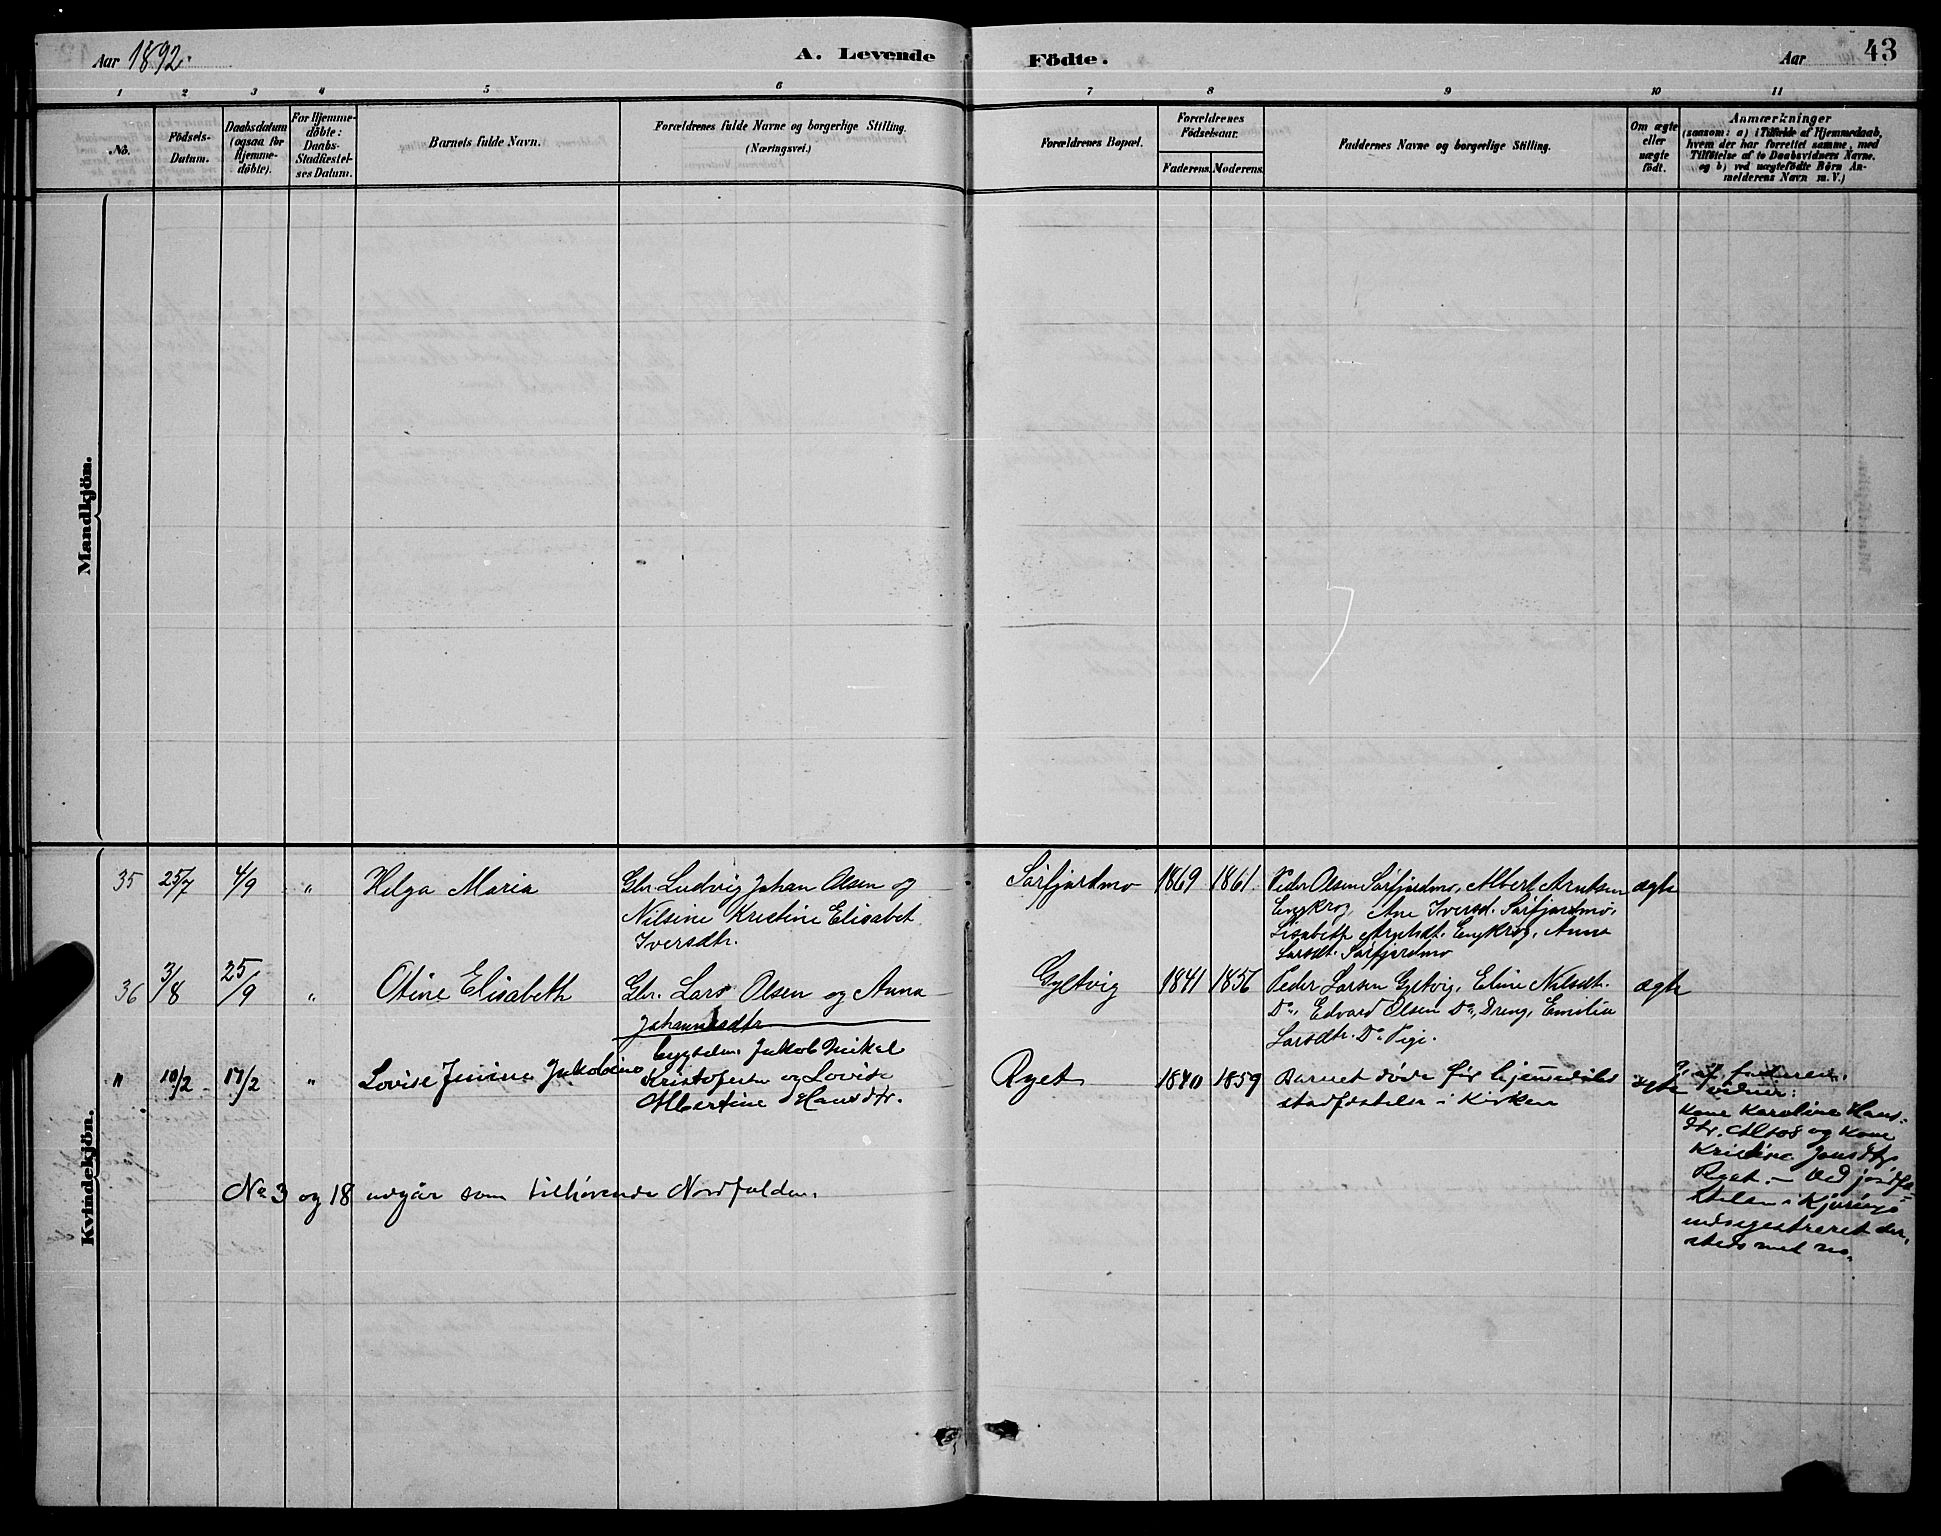 Aar 1892.
A. Levende Födte.
Aar
43
1 2 3 4 5 6 7 8 9 10 11
No.
Födsels-Datum.
Daabsdatum (ogsaa for Hjemme-døbte).
For Hjemme-døbte: Daabs-Stadfæstel-ses Datum.
Barnets fulde Navn.
Forældrenes fulde Navne og borgerlige Stilling. (Næringsvei.)
Forældrenes Bopæl.
Forældrenes Födselsaar.
Faderens. Moderens.
Faddernes Navne og borgerlige Stilling.
Om ægte eller uægte født.
Anmærkninger
(saasom: a) i Tilfælde af Hjemmedaab,
hvem der har forrettet samme, med
Tilføielse af to Daabsvidners Navne,
og b) ved uægtefödte Börn An-
melderens Navn m. V.)
Mandkjön.
Kvindekjön.
35 25/7 4/9 " Helga Maria
Gbr. Ludvig Johan Olsen og
Nilsine Kristine Elisabet
Iversdtr.
Sørfjordmo 1869 1861
Peder Olsen Sørfjordmo, Albert Arntsen
Engkrog, Ane Iversd. Sørfjordmo,
Lisabeth Arntsdt. Engkrog, Anna
Larsdt. Sørfjordmo
ægte
36 3/8 25/9 " Otine Elisabeth
Gbr. Lars Olsen og Anna
Johannesdtr
Gyltvig 1841 1856
Peder Larsen Gyltvig, Eline Nilsdt.
Do, Edvard Olsen Do, Dreng, Emilie
Larsdtr. Do Pige.
ægte
" 10/2 17/2 " Lovise Jenine Jakobine
bygselm. Jakob Mikal
Kristofersen og Lovise
Albertine Hansdtr.
Ryet 1840 1859
Barnet døde før hjemmedåbs
stadfæstelse i Kirken
ægte
af faderen.
Vidner:
Kone Karoline Hans-
dtr. Altos og Kone
Kristine Jonsdtr
Ryet. - Ved jordfæ-
stelsen i Kjøringø
indregistreret der-
steds med no.
No 3 og 18 udgår som tilhørende Nordfolden.